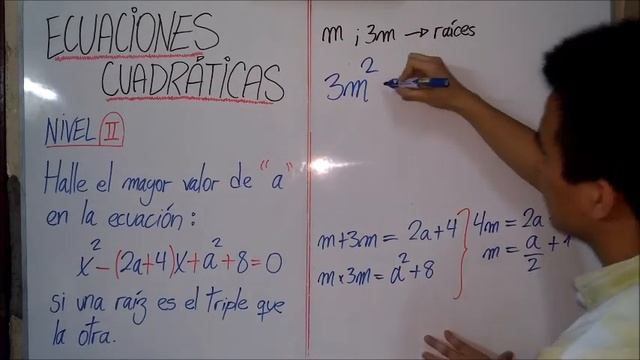 ECUACIONES
CUADRÁTICAS
NIVEL II
Halle el mayor valor de "a"
en la ecuación:
x² - (2a+4)x + a² + 8 = 0
si una raíz es el triple que
la otra.
m ; 3m → raíces
3m²
m+3m = 2a+4
m×3m = a²+8
4m = 2a
m = a/2 +